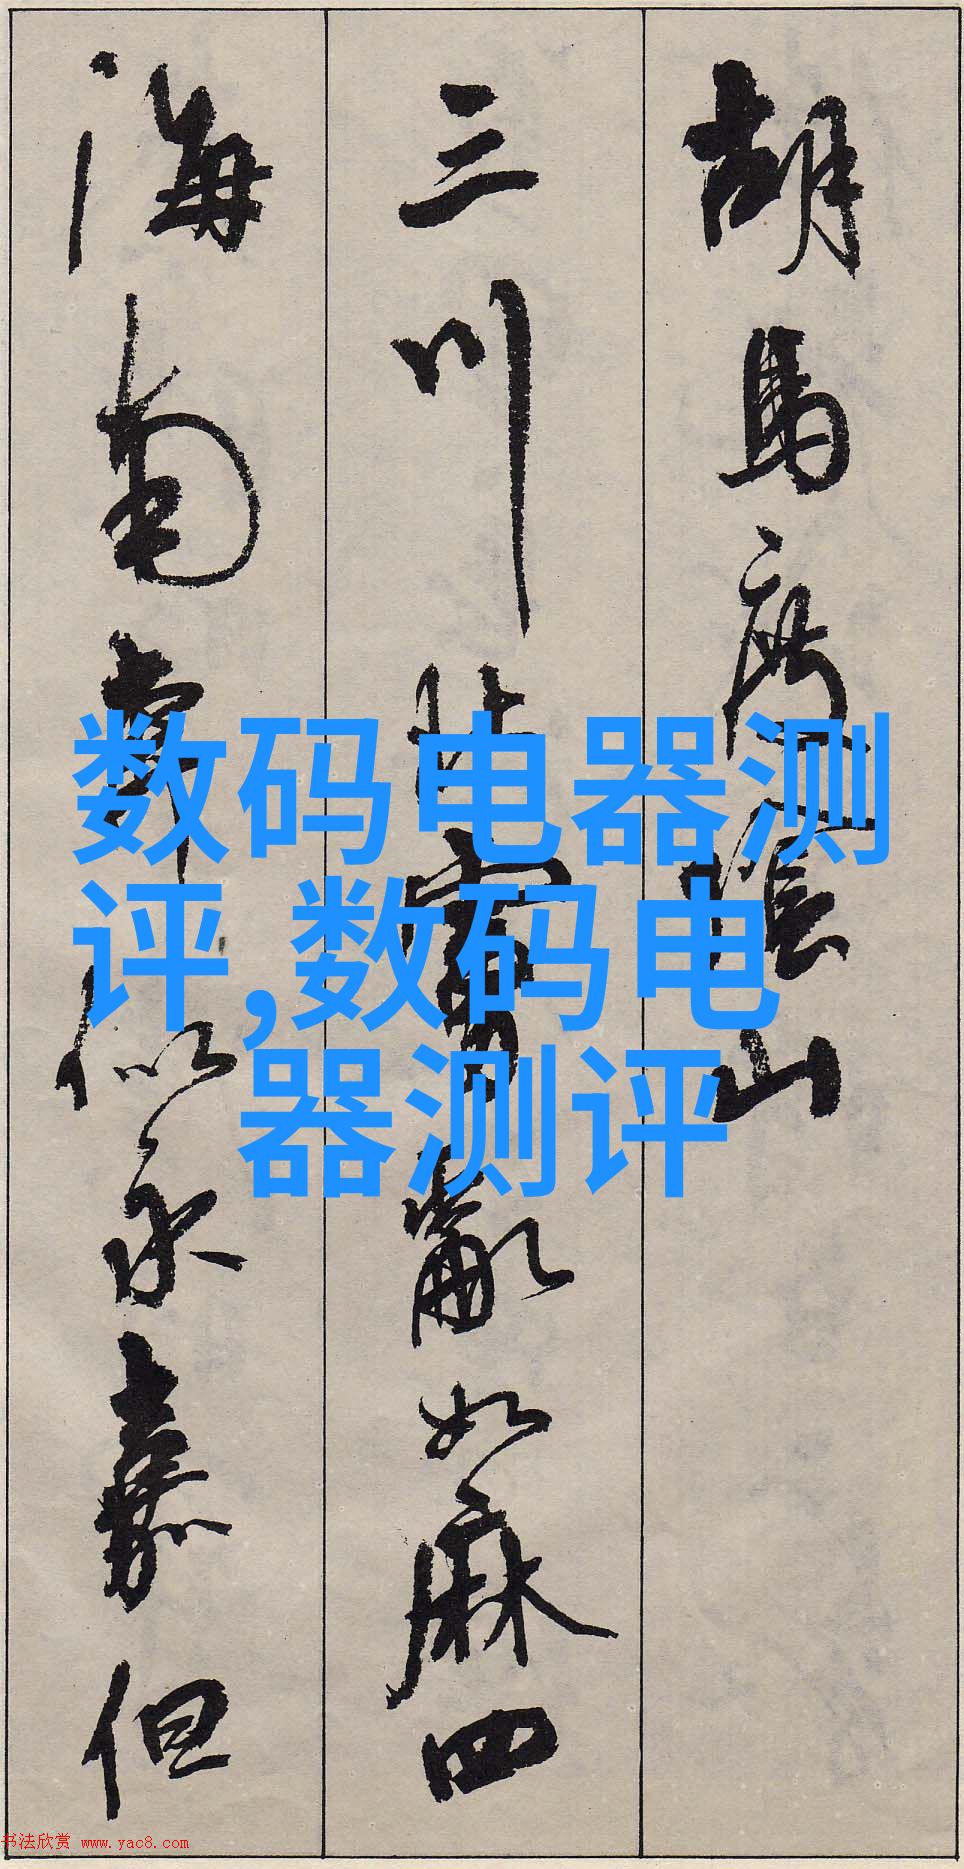 胡馬度陰山
三川北虜亂如麻四
海南奔似永嘉但
数码电器测
评,数码电
器测评
书法欣赏 www.yac8.com